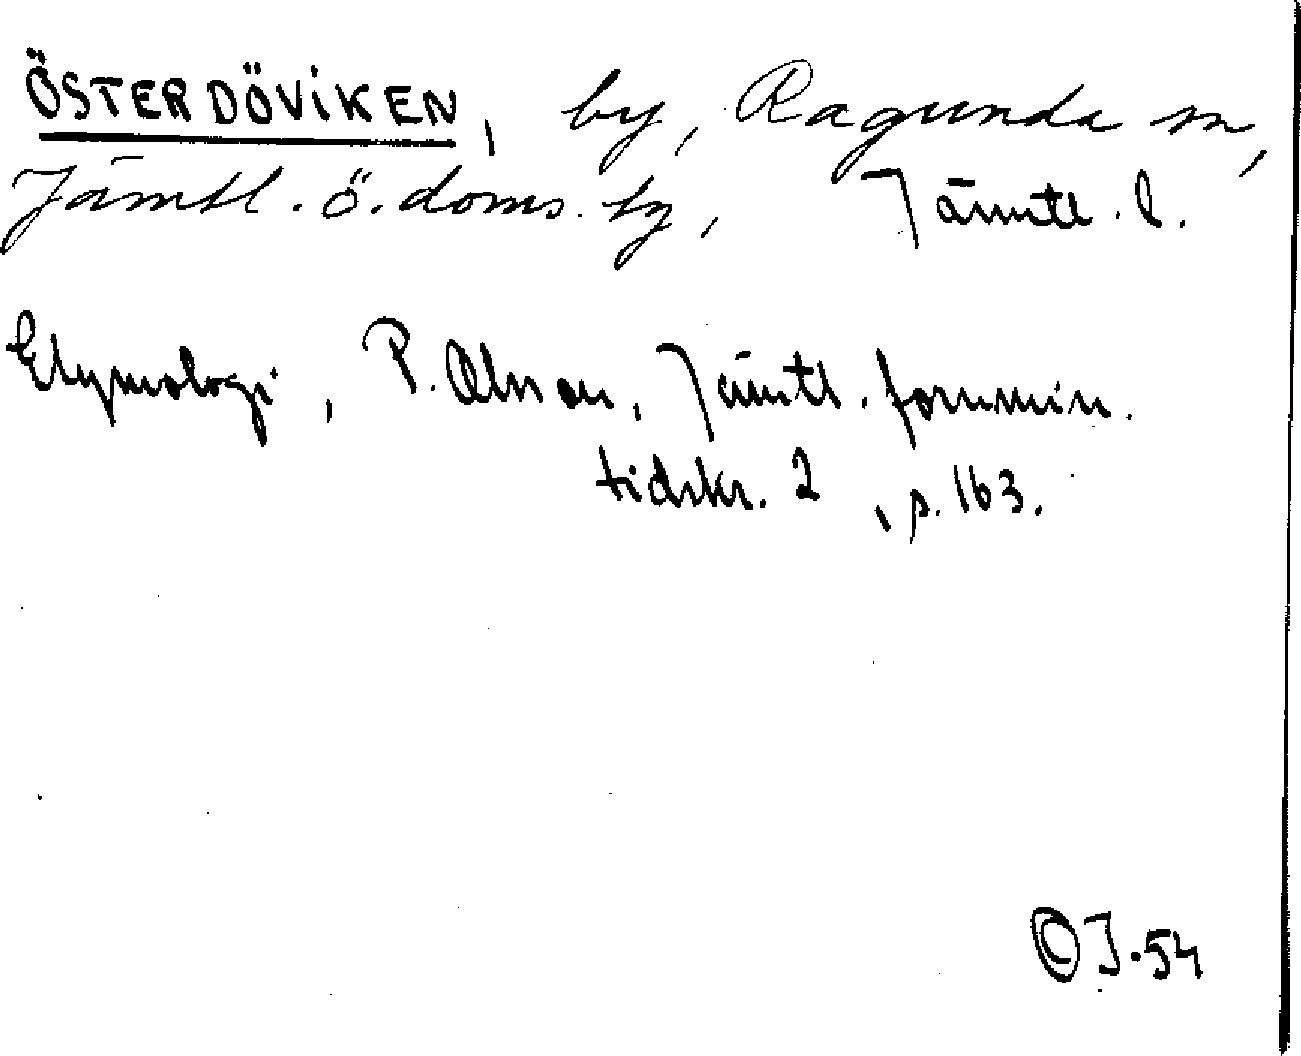 ÖSTERDÖVIKEN, by, Ragunda sn,
Jämtl. ö. doms. by, Jämtl. l.
Etymologi, P. Olsson, Jämtl. fornmin.
tidskr. 2, s. 163.
J-54